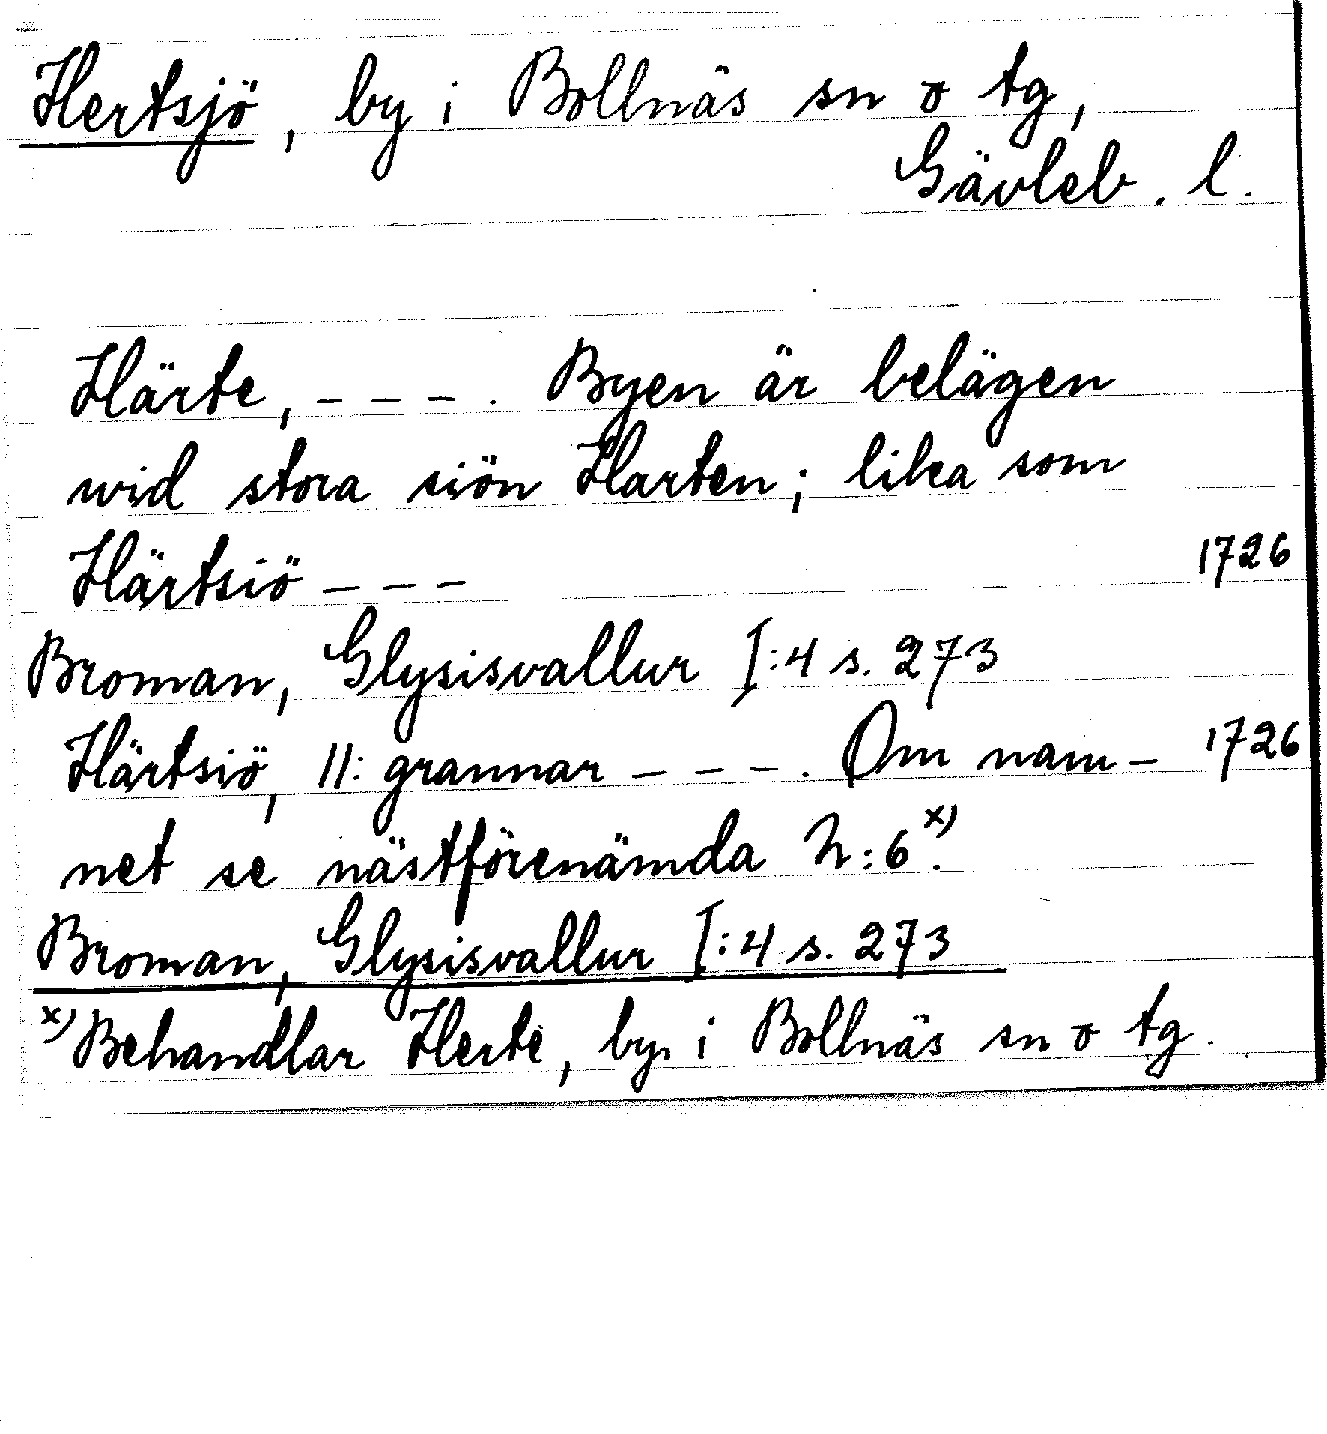 Hertsjö, by i Bollnäs sn o tg,
Gävleb. l.
Härte, - - - . Byen är belägen
wid stora siön Harten; lika som
Härtsiö - - - 1726
Broman, Glysisvallur I:4 s. 273
Härtsiö, 11: grannar - - - . Om nam- 1726
net se nästförenämda N:6x).
Broman, Glysisvallur I:4 s. 273
x) Behandlar Herte, by i Bollnäs sn o tg.